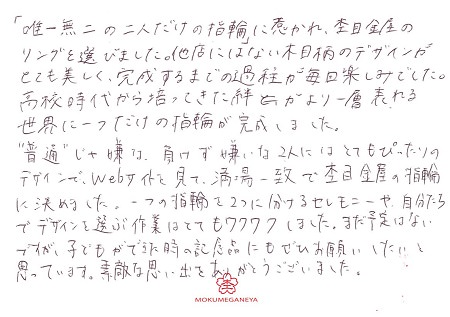 「唯一無二の二人だけの指輪」に惹かれ、杢目金屋の
リングを選びました。他店にはない木目柄のデザインが
とても美しく、完成するまでの過程が毎日楽しみでした。
高校時代から培ってきた絆がより一層表れる
世界に一つだけの指輪が完成しました。
"普通"じゃ嫌な、負けず嫌いな2人にはとてもぴったりの
デザインで、Webサイトを見て、満場一致で杢目金屋の指輪
に決めました。一つの指輪を2つに分けるセレモニーや、自分たち
でデザインを選ぶ作業はとてもワクワクしました。まだ予定はない
ですが、子どもができた時の記念品にもぜひお願いしたいと
思っています。素敵な思い出をありがとうございました。
MOKUMEGANEYA